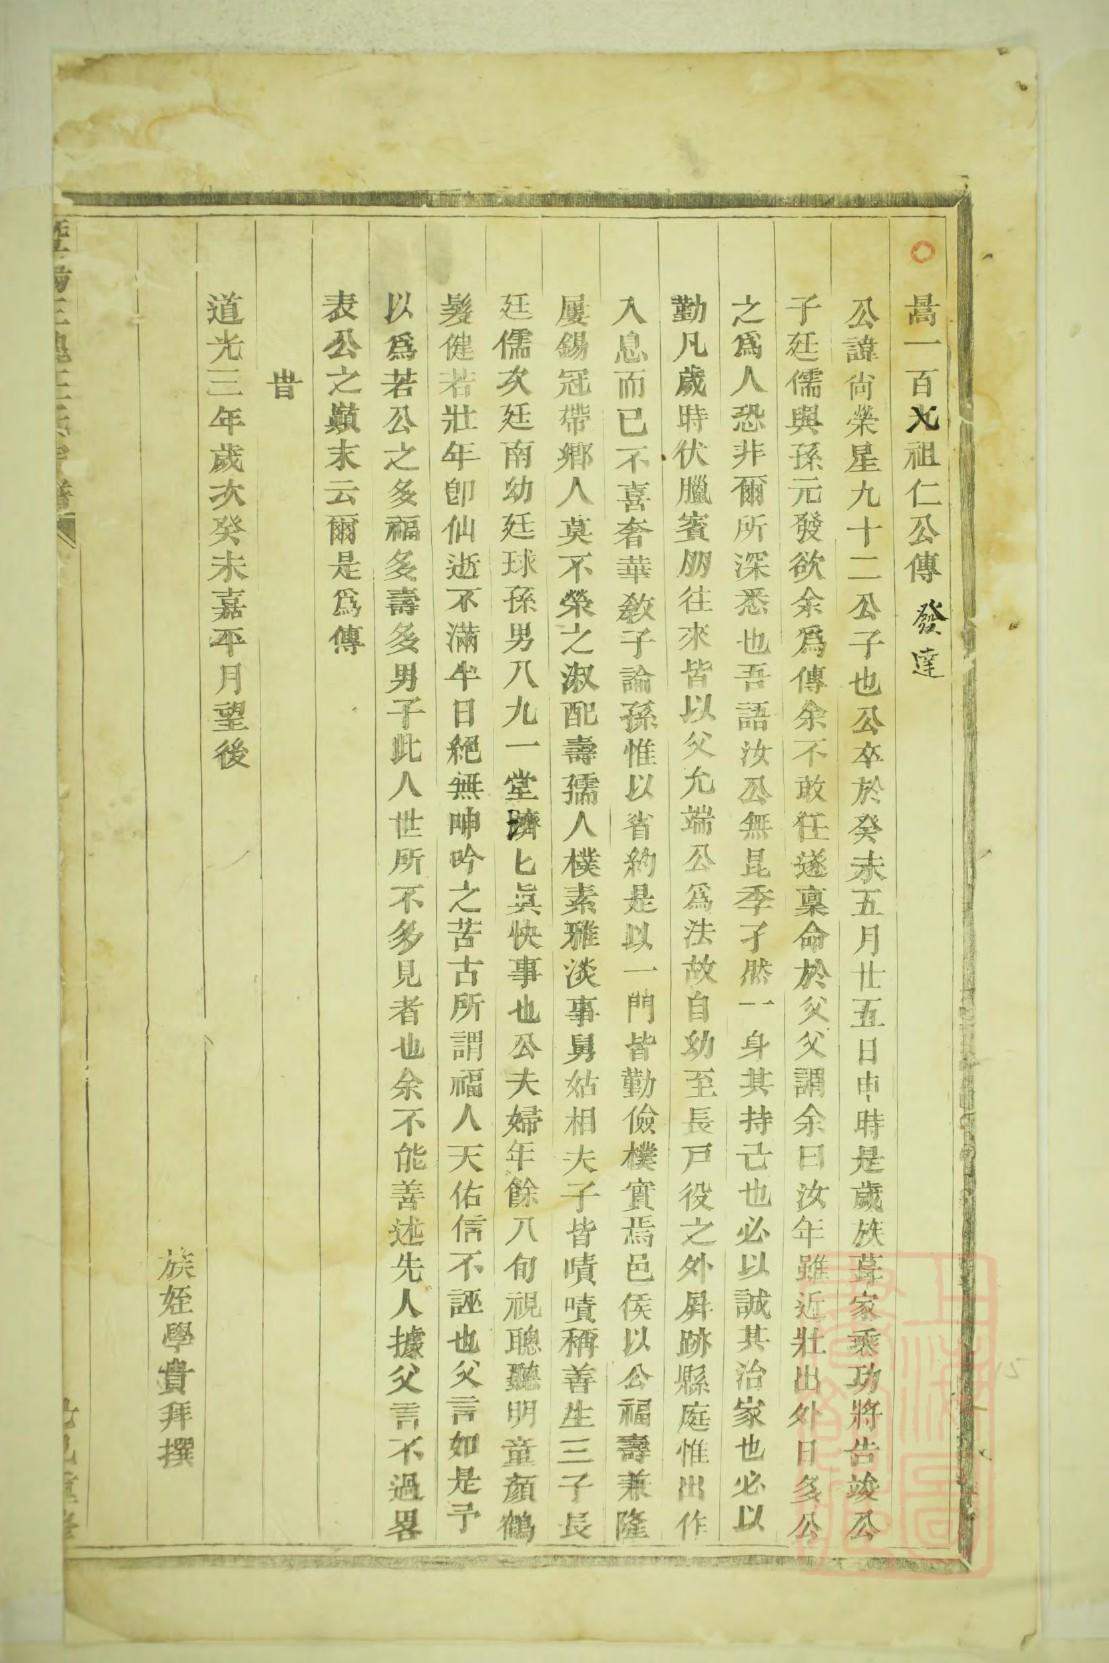 暠一百九祖仁公傳 發達
公諱尙榮星九十二公子也公卒於癸未五月廿五日申時是歲族葺家乘功將告竣公
子廷儒與孫元發欲余爲傳余不敢任遂稟命於父父謂余曰汝年雖近壯出外日多公
之爲人恐非爾所深悉也吾語汝公無昆季孑然一身其持己也必以誠其治家也必以
勤凡歲時伏臘賓朋往來皆以父允端公爲法故自幼至長戸役之外屛跡縣庭惟出作
入息而已不喜奢華敎子諭孫惟以省約是以一門皆勤儉樸實焉邑侯以公福壽兼隆
屢錫冠帶鄉人莫不榮之淑配壽孺人樸素雅淡事舅姑相夫子皆嘖嘖稱善生三子長
廷儒次廷南幼廷球孫男八九一堂濟匕眞快事也公夫婦年餘八旬視聰聽明童顏鶴
髮健若壯年卽仙逝不滿半日絕無呻吟之苦古所謂福人天佑信不誣也父言如是予
以爲若公之多福多壽多男子此人世所不多見者也余不能善述先人據父言不過畧
表公之顚末云爾是爲傳
旹
道光三年歲次癸未嘉平月望後
族姪學貴拜撰